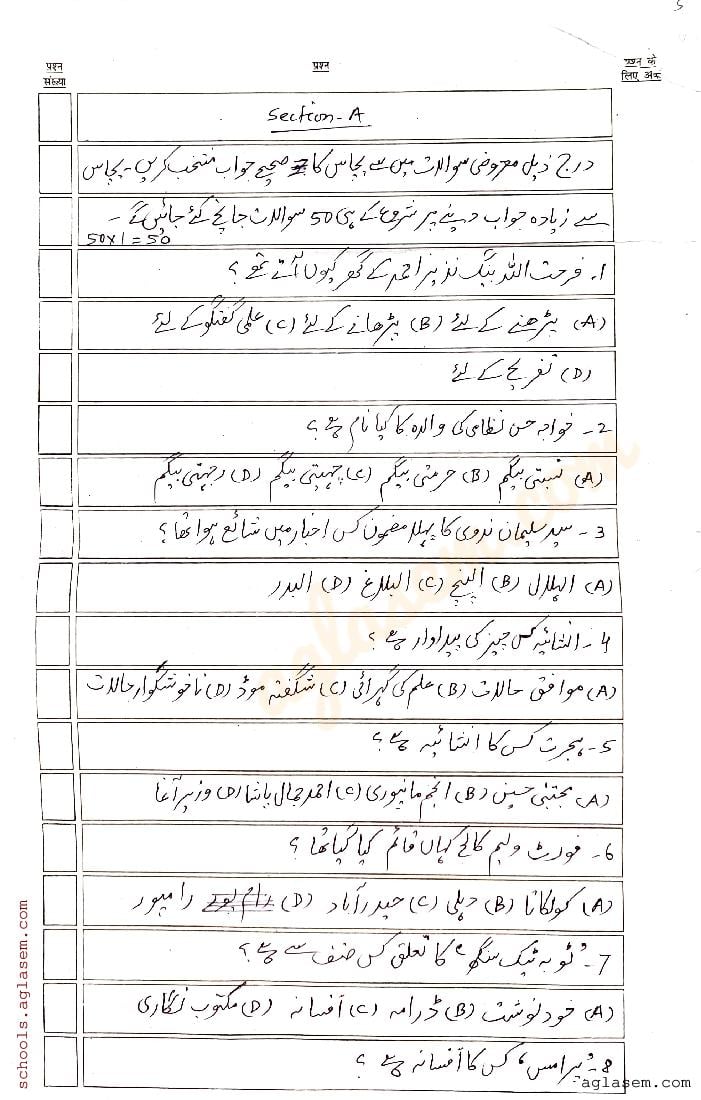 5
प्रश्न संख्या
प्रश्न
प्रश्न के लिए अंक
Section-A
درج ذیل معروضی سوالات میں سے پچاس کا صحیح جواب منتخب کریں۔ پچاس
سے زیادہ جواب دینے پر شروع کے ہی 50 سوالات جانچے جائیں گے۔
50x1=50
1. فرحت اللہ بیگ نذیر احمد کے گھر کیوں آتے تھے؟
(A) پڑھنے کے لئے (B) پڑھانے کے لئے (C) علمی گفتگو کے لئے
(D) تفریح کے لئے
2- خواجہ حسن نظامی کی والدہ کا کیا نام ہے؟
(A) نسبتی بیگم (B) حرمتی بیگم (C) چہیتی بیگم (D) رحمتی بیگم
3- سید سلیمان ندوی کا پہلا مضمون کس اخبار میں شائع ہوا تھا؟
(A) الہلال (B) الپنچ (C) البلاغ (D) البدر
4- انشائیہ کس چیز کی پیداوار ہے؟
(A) موافق حالات (B) علم کی گہرائی (C) شگفتہ موڈ (D) ناخوشگوار حالات
5- ہجرت کس کا انشائیہ ہے؟
(A) مجتبیٰ حسین (B) انجم مانپوری (C) احمد جمال پاشا (D) وزیر آغا
6- فورٹ ولیم کالج کہاں قائم کیا گیا تھا؟
(A) کولکاتا (B) دہلی (C) حیدرآباد (D) رامپور
7- 'ٹوبہ ٹیک سنگھ' کا تعلق کس صنف سے ہے؟
(A) خودنوشت (B) ڈرامہ (C) افسانہ (D) مکتوب نگاری
8- 'پرامس' کس کا افسانہ ہے؟
schools.aglasem.com
aglasem.com
aglasem.com